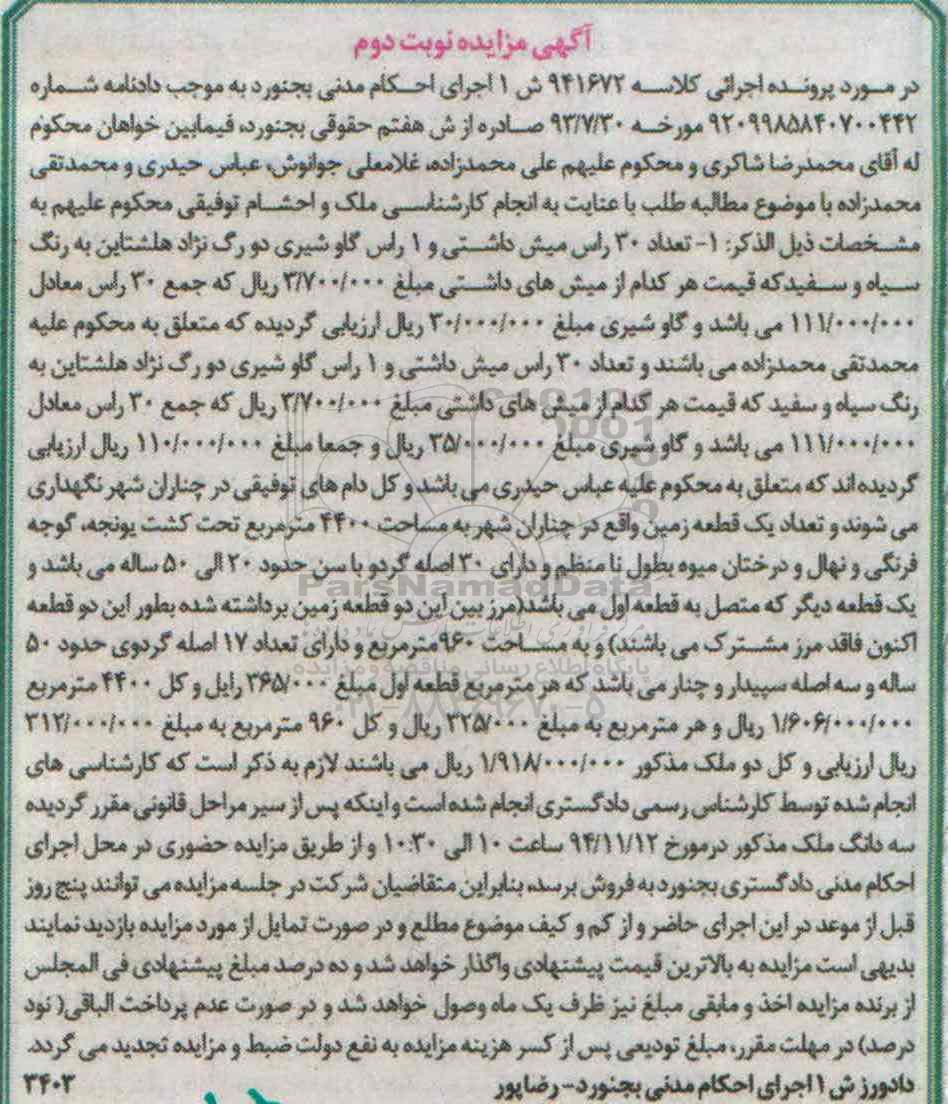 آگهی مزایده نوبت دوم
در مورد پرونده اجرائی کلاسه ۹۴۱۶۷۲ ش ۱ اجرای احکام مدنی بجنورد به موجب دادنامه شماره
۹۲۰۹۹۸۵۸۴۰۷۰۰۴۴۲ مورخه ۹۳/۷/۳۰ صادره از ش هفتم حقوقی بجنورد، فیمابین خواهان محکوم
له آقای محمدرضا شاکری و محکوم علیهم علی محمدزاده، غلامعلی جوانوش، عباس حیدری و محمدتقی
محمدزاده با موضوع مطالبه طلب با عنایت به انجام کارشناسی ملک و احشام توفیقی محکوم علیهم به
مشخصات ذیل الذکر: ۱- تعداد ۳۰ راس میش داشتی و ۱ راس گاو شیری دو رگ نژاد هلشتاین به رنگ
سیاه و سفیدکه قیمت هر کدام از میش های داشتی مبلغ ۳/۷۰۰/۰۰۰ ریال که جمع ۳۰ راس معادل
۱۱۱/۰۰۰/۰۰۰ می باشد و گاو شیری مبلغ ۳۰/۰۰۰/۰۰۰ ریال ارزیابی گردیده که متعلق به محکوم علیه
محمدتقی محمدزاده می باشند و تعداد ۳۰ راس میش داشتی و ۱ راس گاو شیری دو رگ نژاد هلشتاین به
رنگ سیاه و سفید که قیمت هر کدام از میش های داشتی مبلغ ۳/۷۰۰/۰۰۰ ریال که جمع ۳۰ راس معادل
۱۱۱/۰۰۰/۰۰۰ می باشد و گاو شیری مبلغ ۳۵/۰۰۰/۰۰۰ ریال و جمعا مبلغ ۱۱۰/۰۰۰/۰۰۰ ریال ارزیابی
گردیده اند که متعلق به محکوم علیه عباس حیدری می باشد و کل دام های توفیقی در چناران شهر نگهداری
می شوند و تعداد یک قطعه زمین واقع در چناران شهر به مساحت ۴۴۰۰ مترمربع تحت کشت یونجه، گوجه
فرنگی و نهال و درختان میوه بطول نا منظم و دارای ۳۰ اصله گردو با سن حدود ۲۰ الی ۵۰ ساله می باشد و
یک قطعه دیگر که متصل به قطعه اول می باشد(مرز بین این دو قطعه زمین برداشته شده بطور این دو قطعه
اکنون فاقد مرز مشترک می باشند) و به مساحت ۹۶۰مترمربع و دارای تعداد ۱۷ اصله گردوی حدود ۵۰
ساله و سه اصله سپیدار و چنار می باشد که هر مترمربع قطعه اول مبلغ ۳۶۵/۰۰۰ رایل و کل ۴۴۰۰ مترمربع
۱/۶۰۶/۰۰۰/۰۰۰ ریال و هر مترمربع به مبلغ ۳۲۵/۰۰۰ ریال و کل ۹۶۰ مترمربع به مبلغ ۳۱۲/۰۰۰/۰۰۰
ریال ارزیابی و کل دو ملک مذکور ۱/۹۱۸/۰۰۰/۰۰۰ ریال می باشند لازم به ذکر است که کارشناسی های
انجام شده توسط کارشناس رسمی دادگستری انجام شده است و اینکه پس از سیر مراحل قانونی مقرر گردیده
سه دانگ ملک مذکور درمورخ ۹۴/۱۱/۱۲ ساعت ۱۰ الی ۱۰:۳۰ و از طریق مزایده حضوری در محل اجرای
احکام مدنی دادگستری بجنورد به فروش برسد، بنابراین متقاضیان شرکت در جلسه مزایده می توانند پنج روز
قبل از موعد در این اجرای حاضر و از کم و کیف موضوع مطلع و در صورت تمایل از مورد مزایده بازدید نمایند
بدیهی است مزایده به بالاترین قیمت پیشنهادی واگذار خواهد شد و ده درصد مبلغ پیشنهادی فی المجلس
از برنده مزایده اخذ و مابقی مبلغ نیز ظرف یک ماه وصول خواهد شد و در صورت عدم پرداخت الباقی( نود
درصد) در مهلت مقرر، مبلغ تودیعی پس از کسر هزینه مزایده به نفع دولت ضبط و مزایده تجدید می گردد.
دادورز ش ۱ اجرای احکام مدنی بجنورد- رضاپور ۳۴۰۳
ParsNamadData
پایگاه اطلاع رسانی مناقصه و مزایده
۰۲۱-۸۸۳۴۹۶۷۰-۵